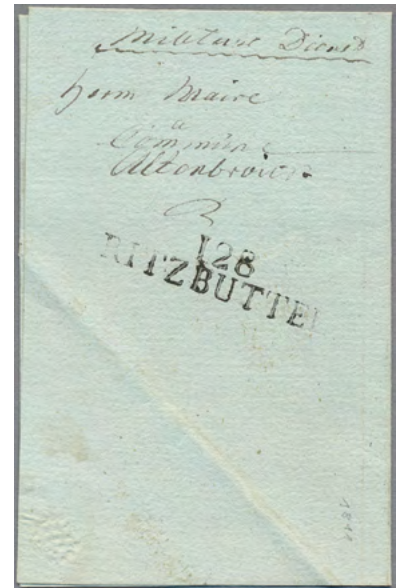 Militair Dienst
Herrn Maire
a
Commune
Altenbrouch
128
RITZBUTTEL
1811